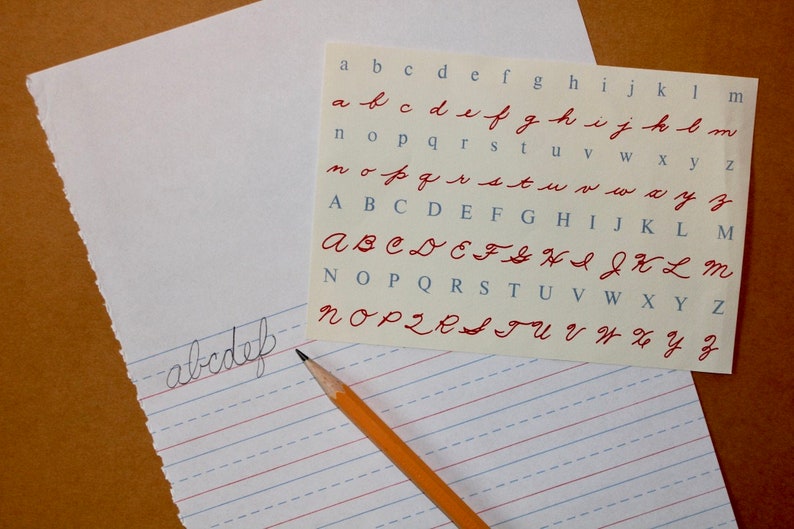 abcdef
a b c d e f g h i j k l m
a b c d e f g h i j k l m
n o p q r s t u v w x y z
n o p q r s t u v w x y z
A B C D E F G H I J K L M
A B C D E F G H I J K L M
N O P Q R S T U V W X Y Z
N O P Q R S T U V W X Y Z